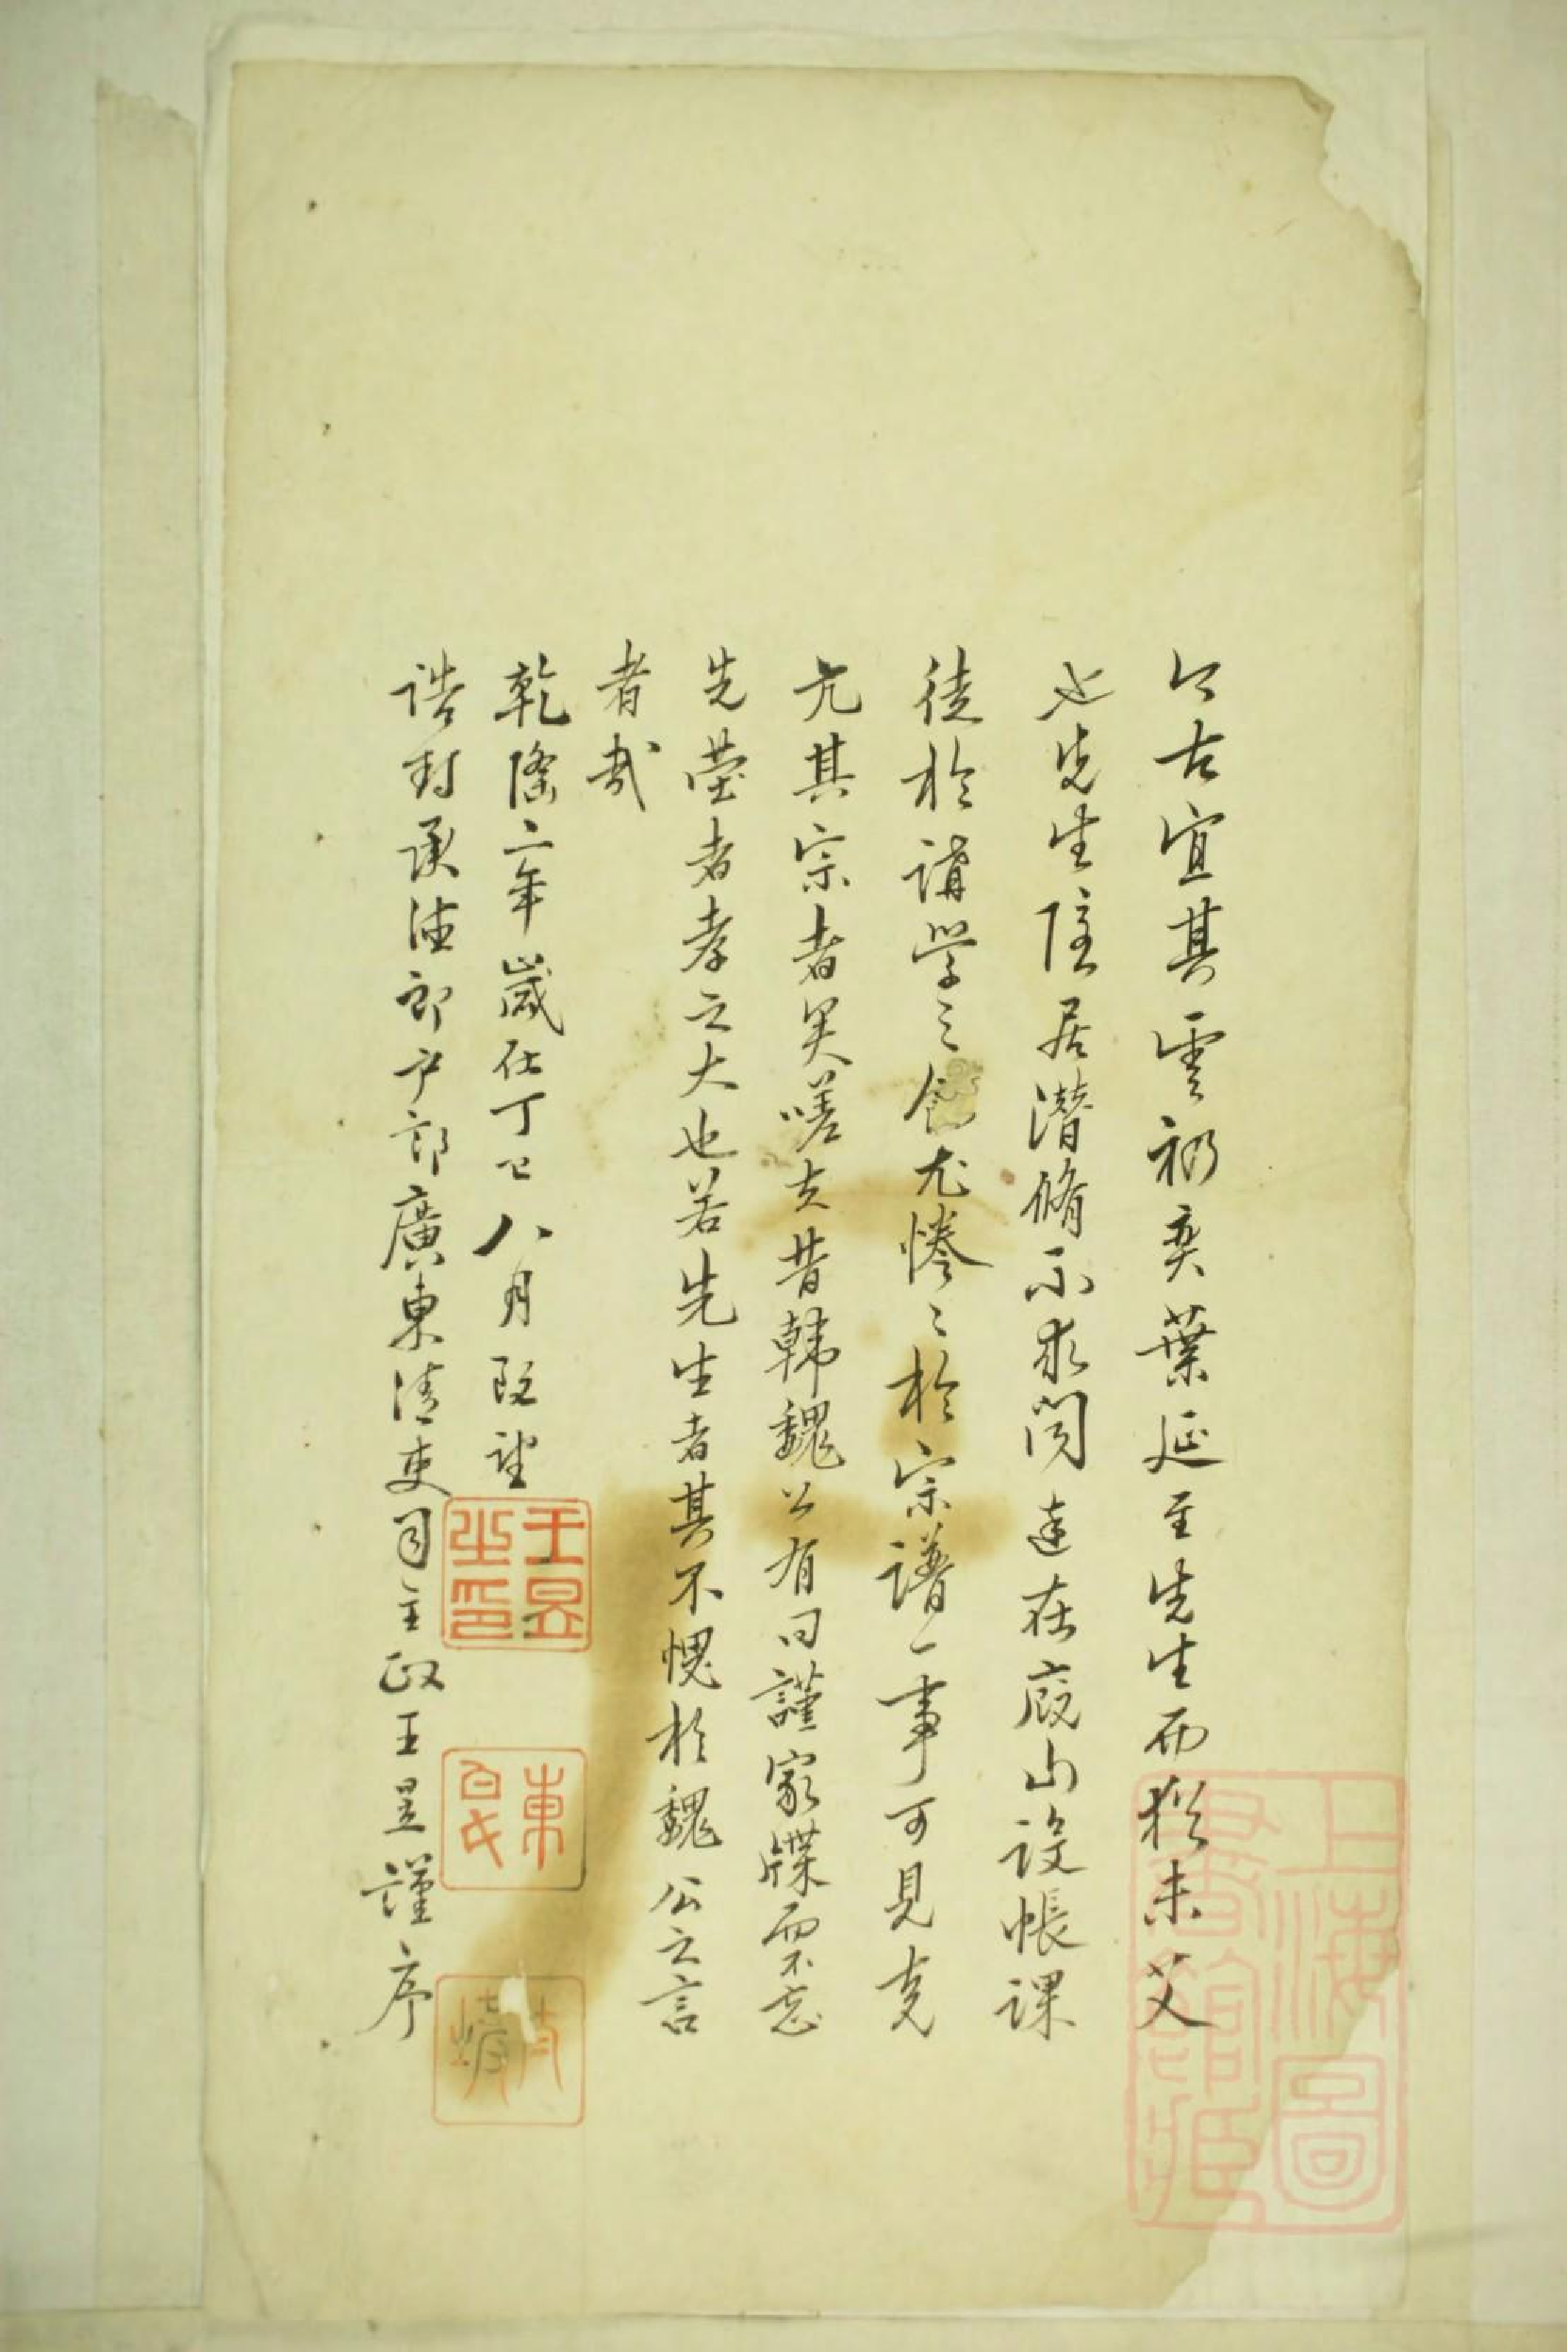 公古宜其雲礽奕葉延至先生而猶未艾
也先生隱居潛脩不求聞達在殿山設帳課
徒於講學之餘尤惓〻於宗譜一事可見克
亢其宗者矣嗟夫昔韓魏公有曰謹家牒而不忘
先塋者孝之大也若先生者其不愧於魏公之言
者哉
乾隆二年歲在丁巳八月既望
誥封承德郎戶部廣東清吏司主政王昱謹序
王昱之印
東
上海圖書館藏